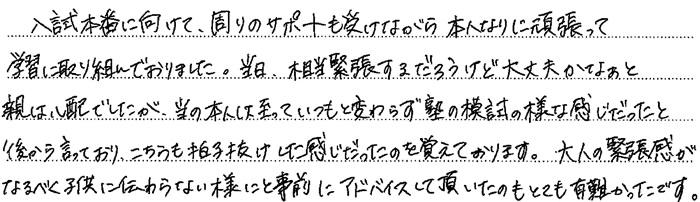 入試本番に向けて、周りのサポートも受けながら本人なりに頑張って
学習に取り組んでおりました。当日、相当緊張するだろうけど大丈夫かなぁと
親は心配でしたが、当の本人は至っていつもと変わらず塾の模試の様な感じだったと
後から言っており、こちらも拍子抜けした感じだったのを覚えております。大人の緊張感が
なるべく子供に伝わらない様にと事前にアドバイスして頂いたのもとても有難かったです。